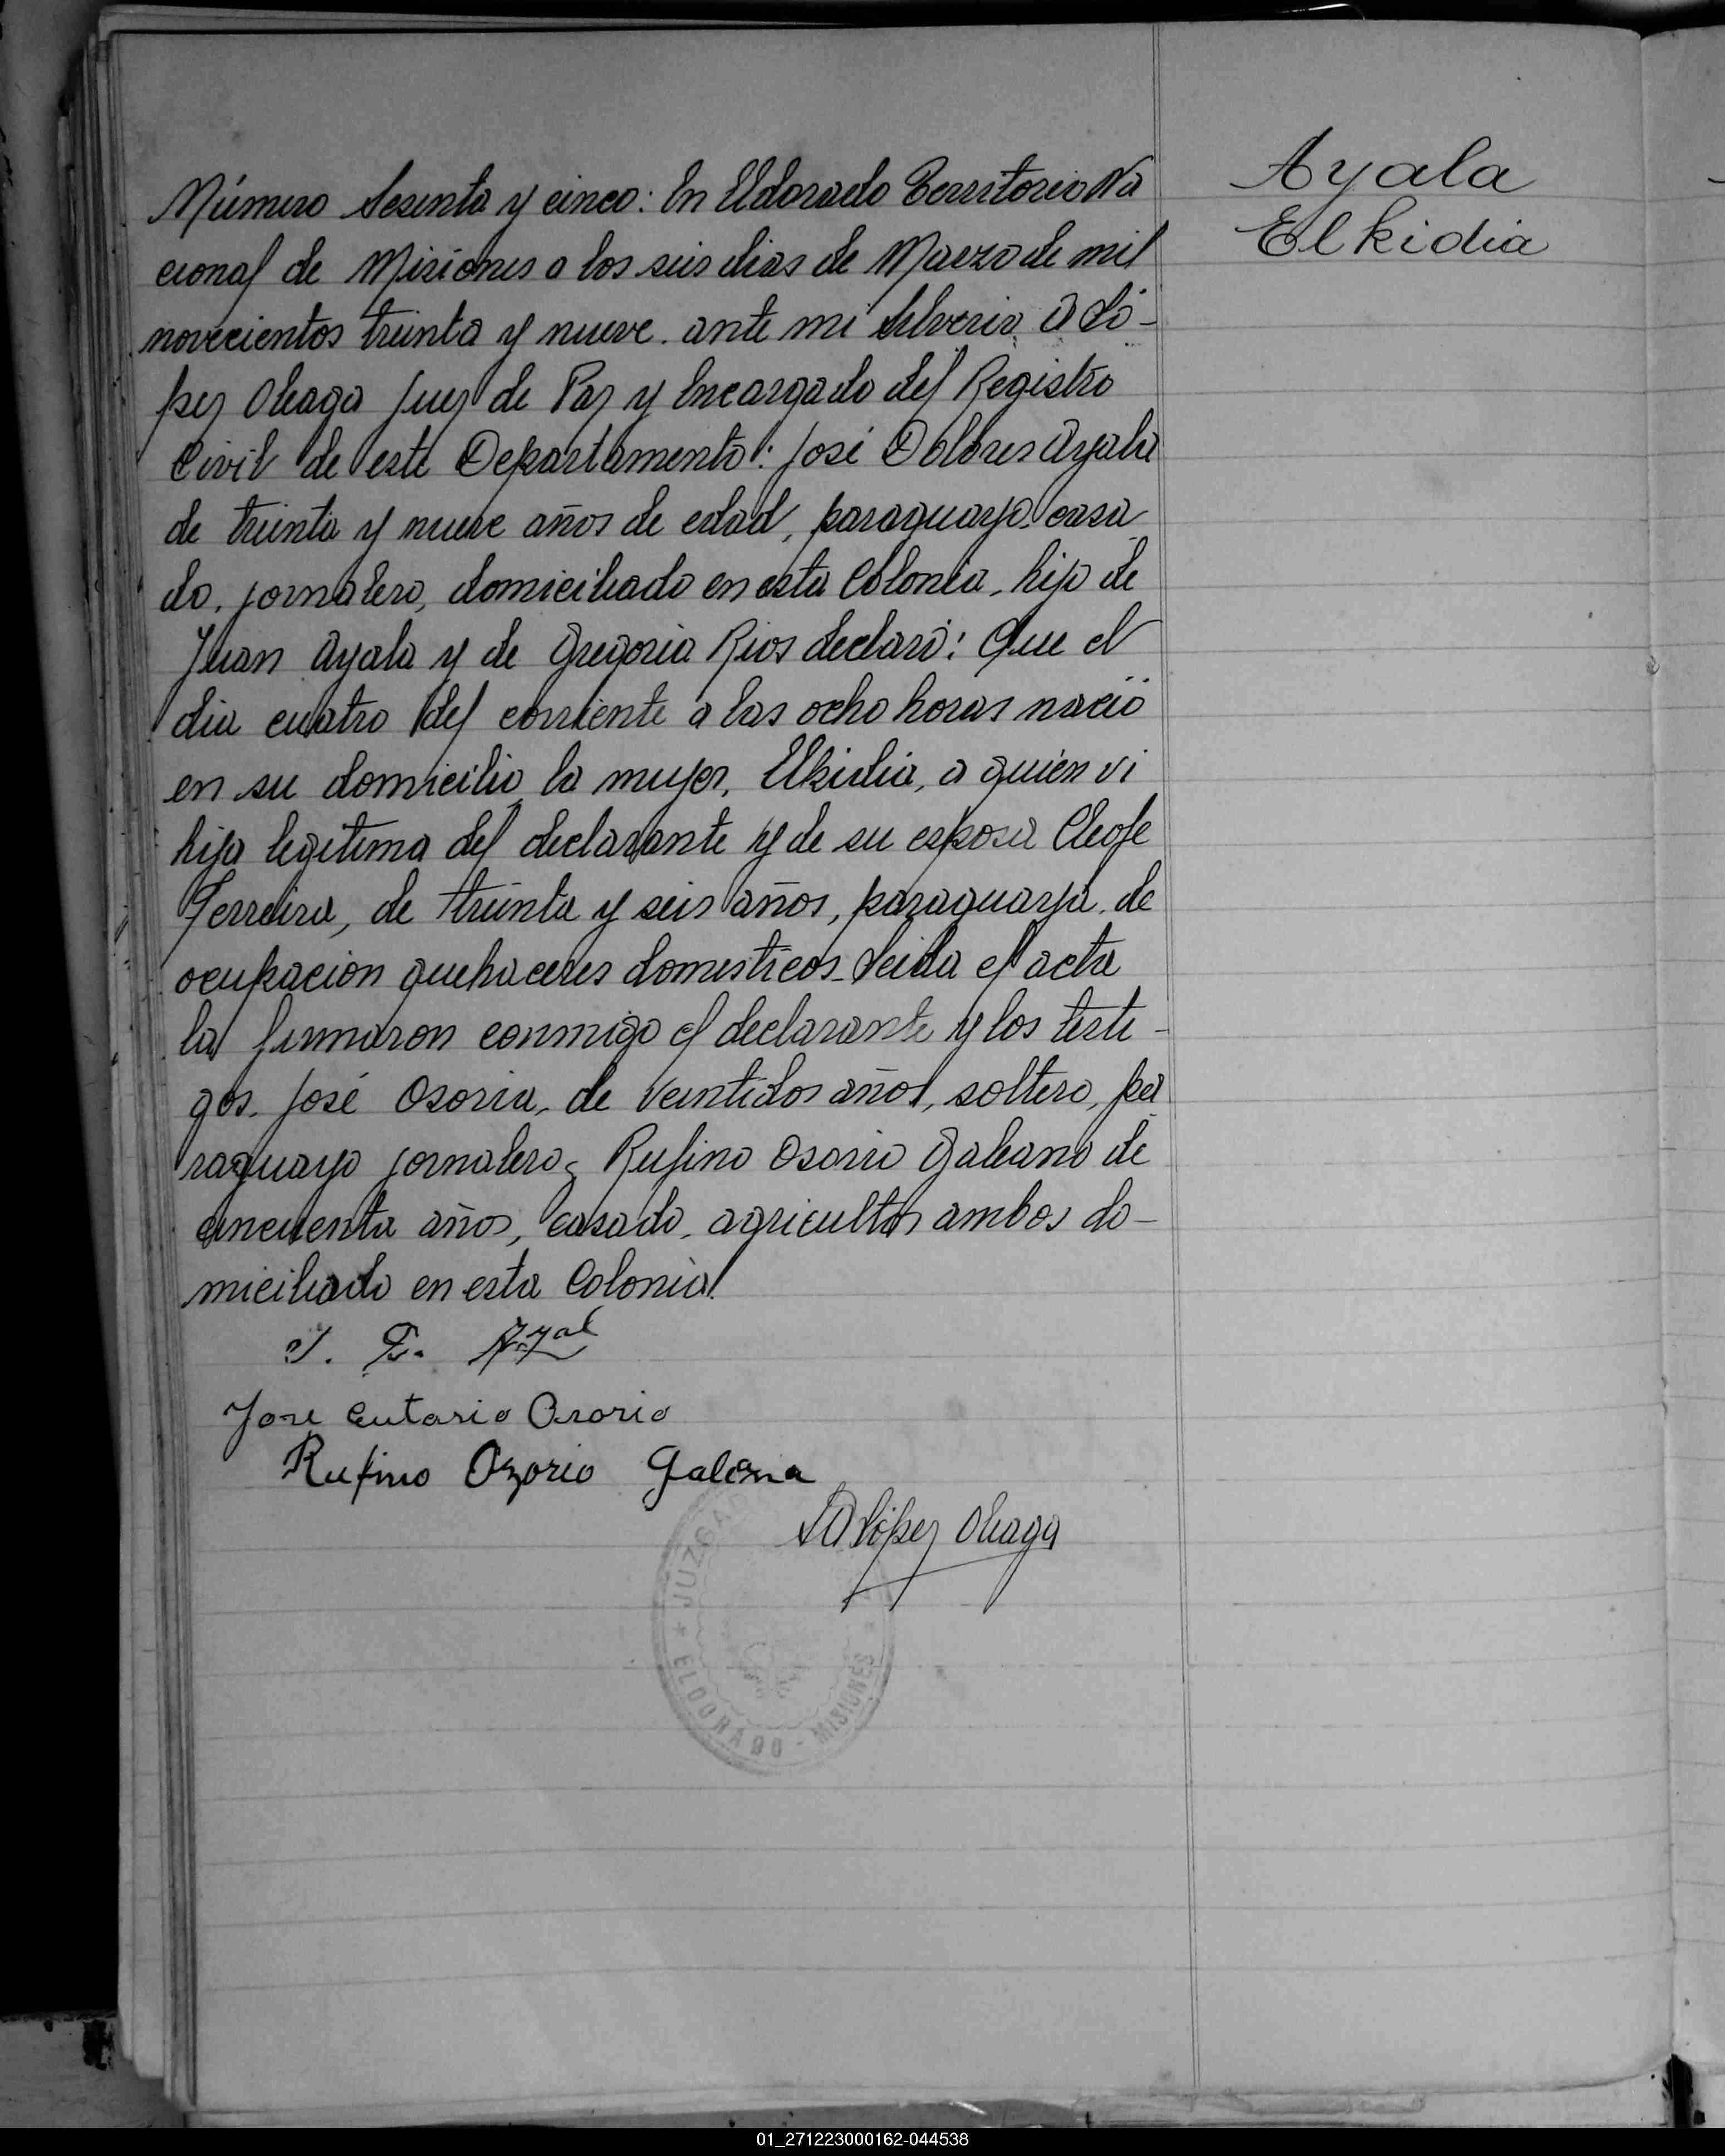 Número Sesenta y cinco: En Eldorado Territorio Na
cional de Misiones a los seis dias de Marzo de mil
novecientos treinta y nueve. ante mi Silverio. A Ló-
pez Oleaga Juez de Paz y Encargado del Registro
Civil de este Departamento: José Dolores Ayala
de treinta y nueve años de edad, paraguayo casa
do, jornalero, domiciliado en esta Colonia, hijo de
Juan Ayala y de Gregoria Rios declaró: Que el
dia cuatro del corriente a las ocho horas nació
en su domicilio la mujer, Elkidia, a quien vi
hija legitima del declarante y de su esposa Cleofe
Ferreira, de treinta y seis años, paraguaya, de
ocupacion quehaceres domesticos. Leida el acta
la firmaron conmigo el declarante y los testi-
gos. José Osorio, de veintidos años, soltero, pa
raguayo jornalero, Rufino Osorio Galeano de
cincuenta años, casado, agricultor ambos do-
miciliado en esta Colonia.
J. D. Ayal
Jose Eutario Osorio
Rufino Ozorio Galeana
SA López Oleaga
JUZGADO
* ELDORADO - MISIONES *
Ayala
Elkidia
01_271223000162-044538